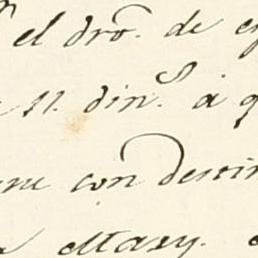 el dro. de
11. din.s á q
con destin
Mary.